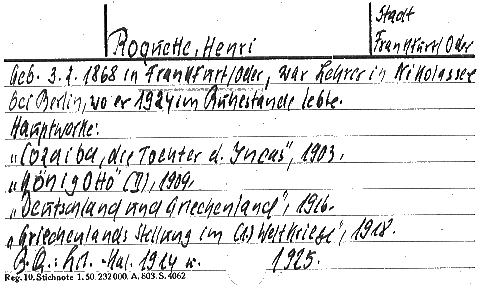 Stadt
Roquette, Henri
Frankfurt/Oder
Geb. 3.1.1868 in Frankfurt/Oder, war Lehrer in Nikolassee
bei Berlin, wo er 1924 im Ruhestande lebte.
Hauptwerke:
„Cozaiba, die Tochter d. Incas", 1903.
„König Otto" (II), 1909.
„Deutschland und Griechenland", 1916.
„Griechenlands Stellung im (1.) Weltkriege", 1918.
B.Q.: Lit.-Kal. 1924 u. 1925.
Reg. 10. Stichnote 1. 50. 232000. A. 803. S. 4062